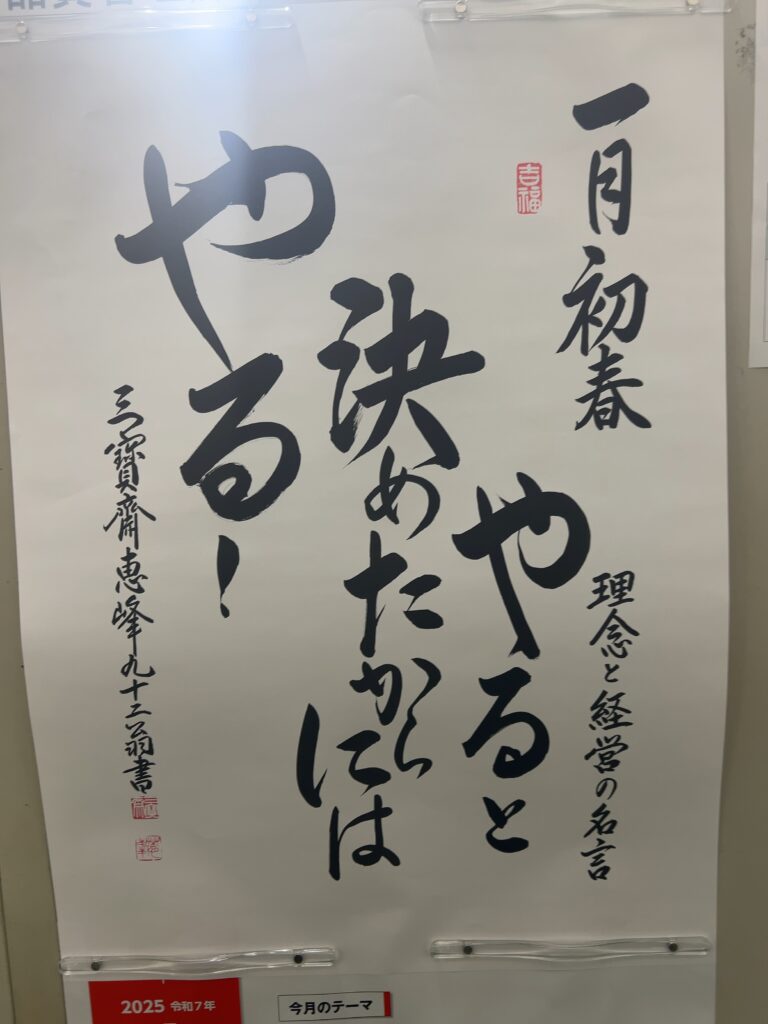 一月初春
吉福
理念と経営の名言
やると
決めたからには
やる!
三寶齋恵峰九十二翁書
2025 令和7年
今月のテーマ